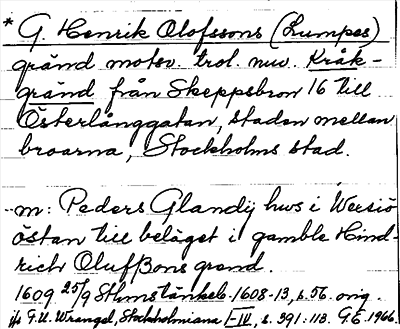 * G. Henrik Olofssons (Lumpes)
gränd motsv. trol. nuv. Kråk-
gränd från Skeppsbron 16 till
Österlånggatan, staden mellan
broarna, Stockholms stad.
m: Peders Glandij hws i Wersiö
östan till beläget i gamble Hind-
rich Olufßons grend.
1609 25/9 Sthms tänkeb. 1608-13, s. 56. orig.
jfr G.U. Wrangel, Stockholmiana I-IV, s. 391:118. G.E. 1966.